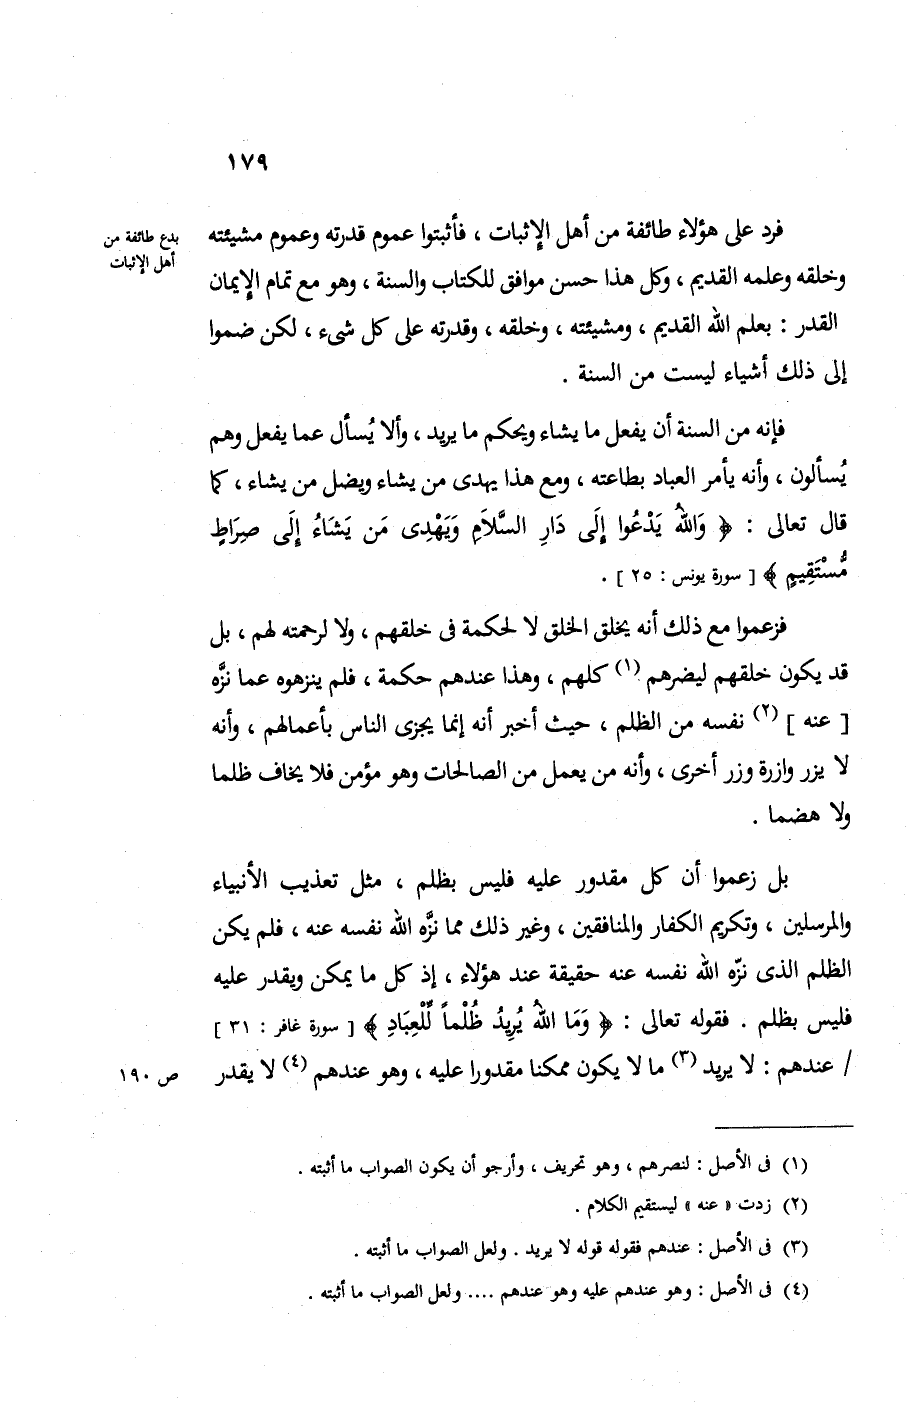 ١٧٩
فرد على هؤلاء طائفة من أهل الإثبات ، فأثبتوا عموم قدرته وعموم مشيئته
بدع طائفة من
أهل الإثبات
وخلقه وعلمه القديم ، وكل هذا حسن موافق للكتاب والسنة ، وهو مع تمام الإيمان
القدر : بعلم الله القديم ، ومشيئته ، وخلقه ، وقدرته على كل شىء ، لكن ضموا
إلى ذلك أشياء ليست من السنة .
فإنه من السنة أن يفعل ما يشاء ويحكم ما يريد ، وألا يُسأل عما يفعل وهم
يُسألون ، وأنه يأمر العباد بطاعته ، ومع هذا يهدى من يشاء ويضل من يشاء ، كما
قال تعالى : ﴿ وَاللهُ يَدْعُوا إِلَى دَارِ السَّلاَمِ وَيَهْدِى مَن يَشَاءُ إِلَى صِرَاطٍ
مُّسْتَقِيمٍ ﴾ [ سورة يونس : ٢٥ ] .
فزعموا مع ذلك أنه يخلق الخلق لا لحكمة فى خلقهم ، ولا لرحمته لهم ، بل
قد يكون خلقهم ليضرهم (١) كلهم ، وهذا عندهم حكمة ، فلم ينزهوه عما نزَّه
[ عنه ] (٢) نفسه من الظلم ، حيث أخبر أنه إنما يجزى الناس بأعمالهم ، وأنه
لا يزر وازرة وزر أخرى ، وأنه من يعمل من الصالحات وهو مؤمن فلا يخاف ظلما
ولا هضما .
بل زعموا أن كل مقدور عليه فليس بظلم ، مثل تعذيب الأنبياء
والمرسلين ، وتكريم الكفار والمنافقين ، وغير ذلك مما نزَّه الله نفسه عنه ، فلم يكن
الظلم الذى نزّه الله نفسه عنه حقيقة عند هؤلاء ، إذ كل ما يمكن ويقدر عليه
فليس بظلم . فقوله تعالى : ﴿ وَمَا اللهُ يُرِيدُ ظُلْماً لِّلْعِبَادِ ﴾ [ سورة غافر : ٣١ ]
/ عندهم : لا يريد (٣) ما لا يكون ممكنا مقدورا عليه ، وهو عندهم (٤) لا يقدر
ص ١٩٠
(١) فى الأصل : لنصرهم ، وهو تحريف ، وأرجو أن يكون الصواب ما أثبته .
(٢) زدت « عنه » ليستقيم الكلام .
(٣) فى الأصل : عندهم فقوله قوله لا يريد . ولعل الصواب ما أثبته .
(٤) فى الأصل : وهو عندهم عليه وهو عندهم .... ولعل الصواب ما أثبته .